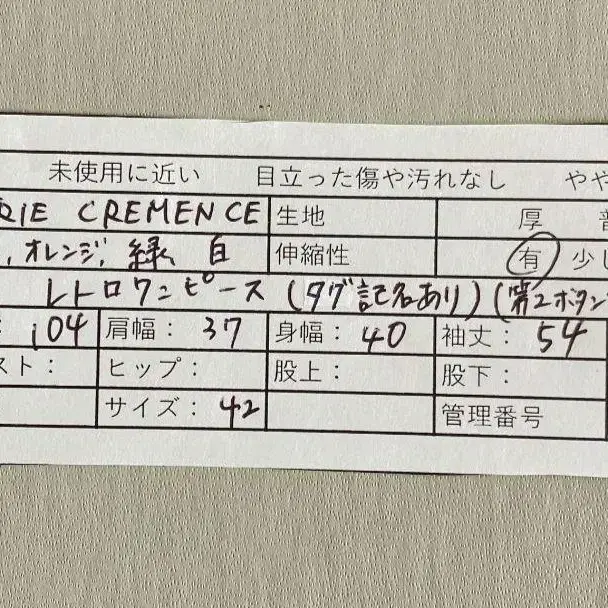 未使用に近い 目立った傷や汚れなし やや
RIE CREMENCE 生地 厚 普
, オレンジ, 緑, 白 伸縮性 有 少し
レトロワンピース (タグ記名あり) (第2ボタン
: 104 肩幅: 37 身幅: 40 袖丈: 54
スト: ヒップ: 股上: 股下:
サイズ: 42 管理番号